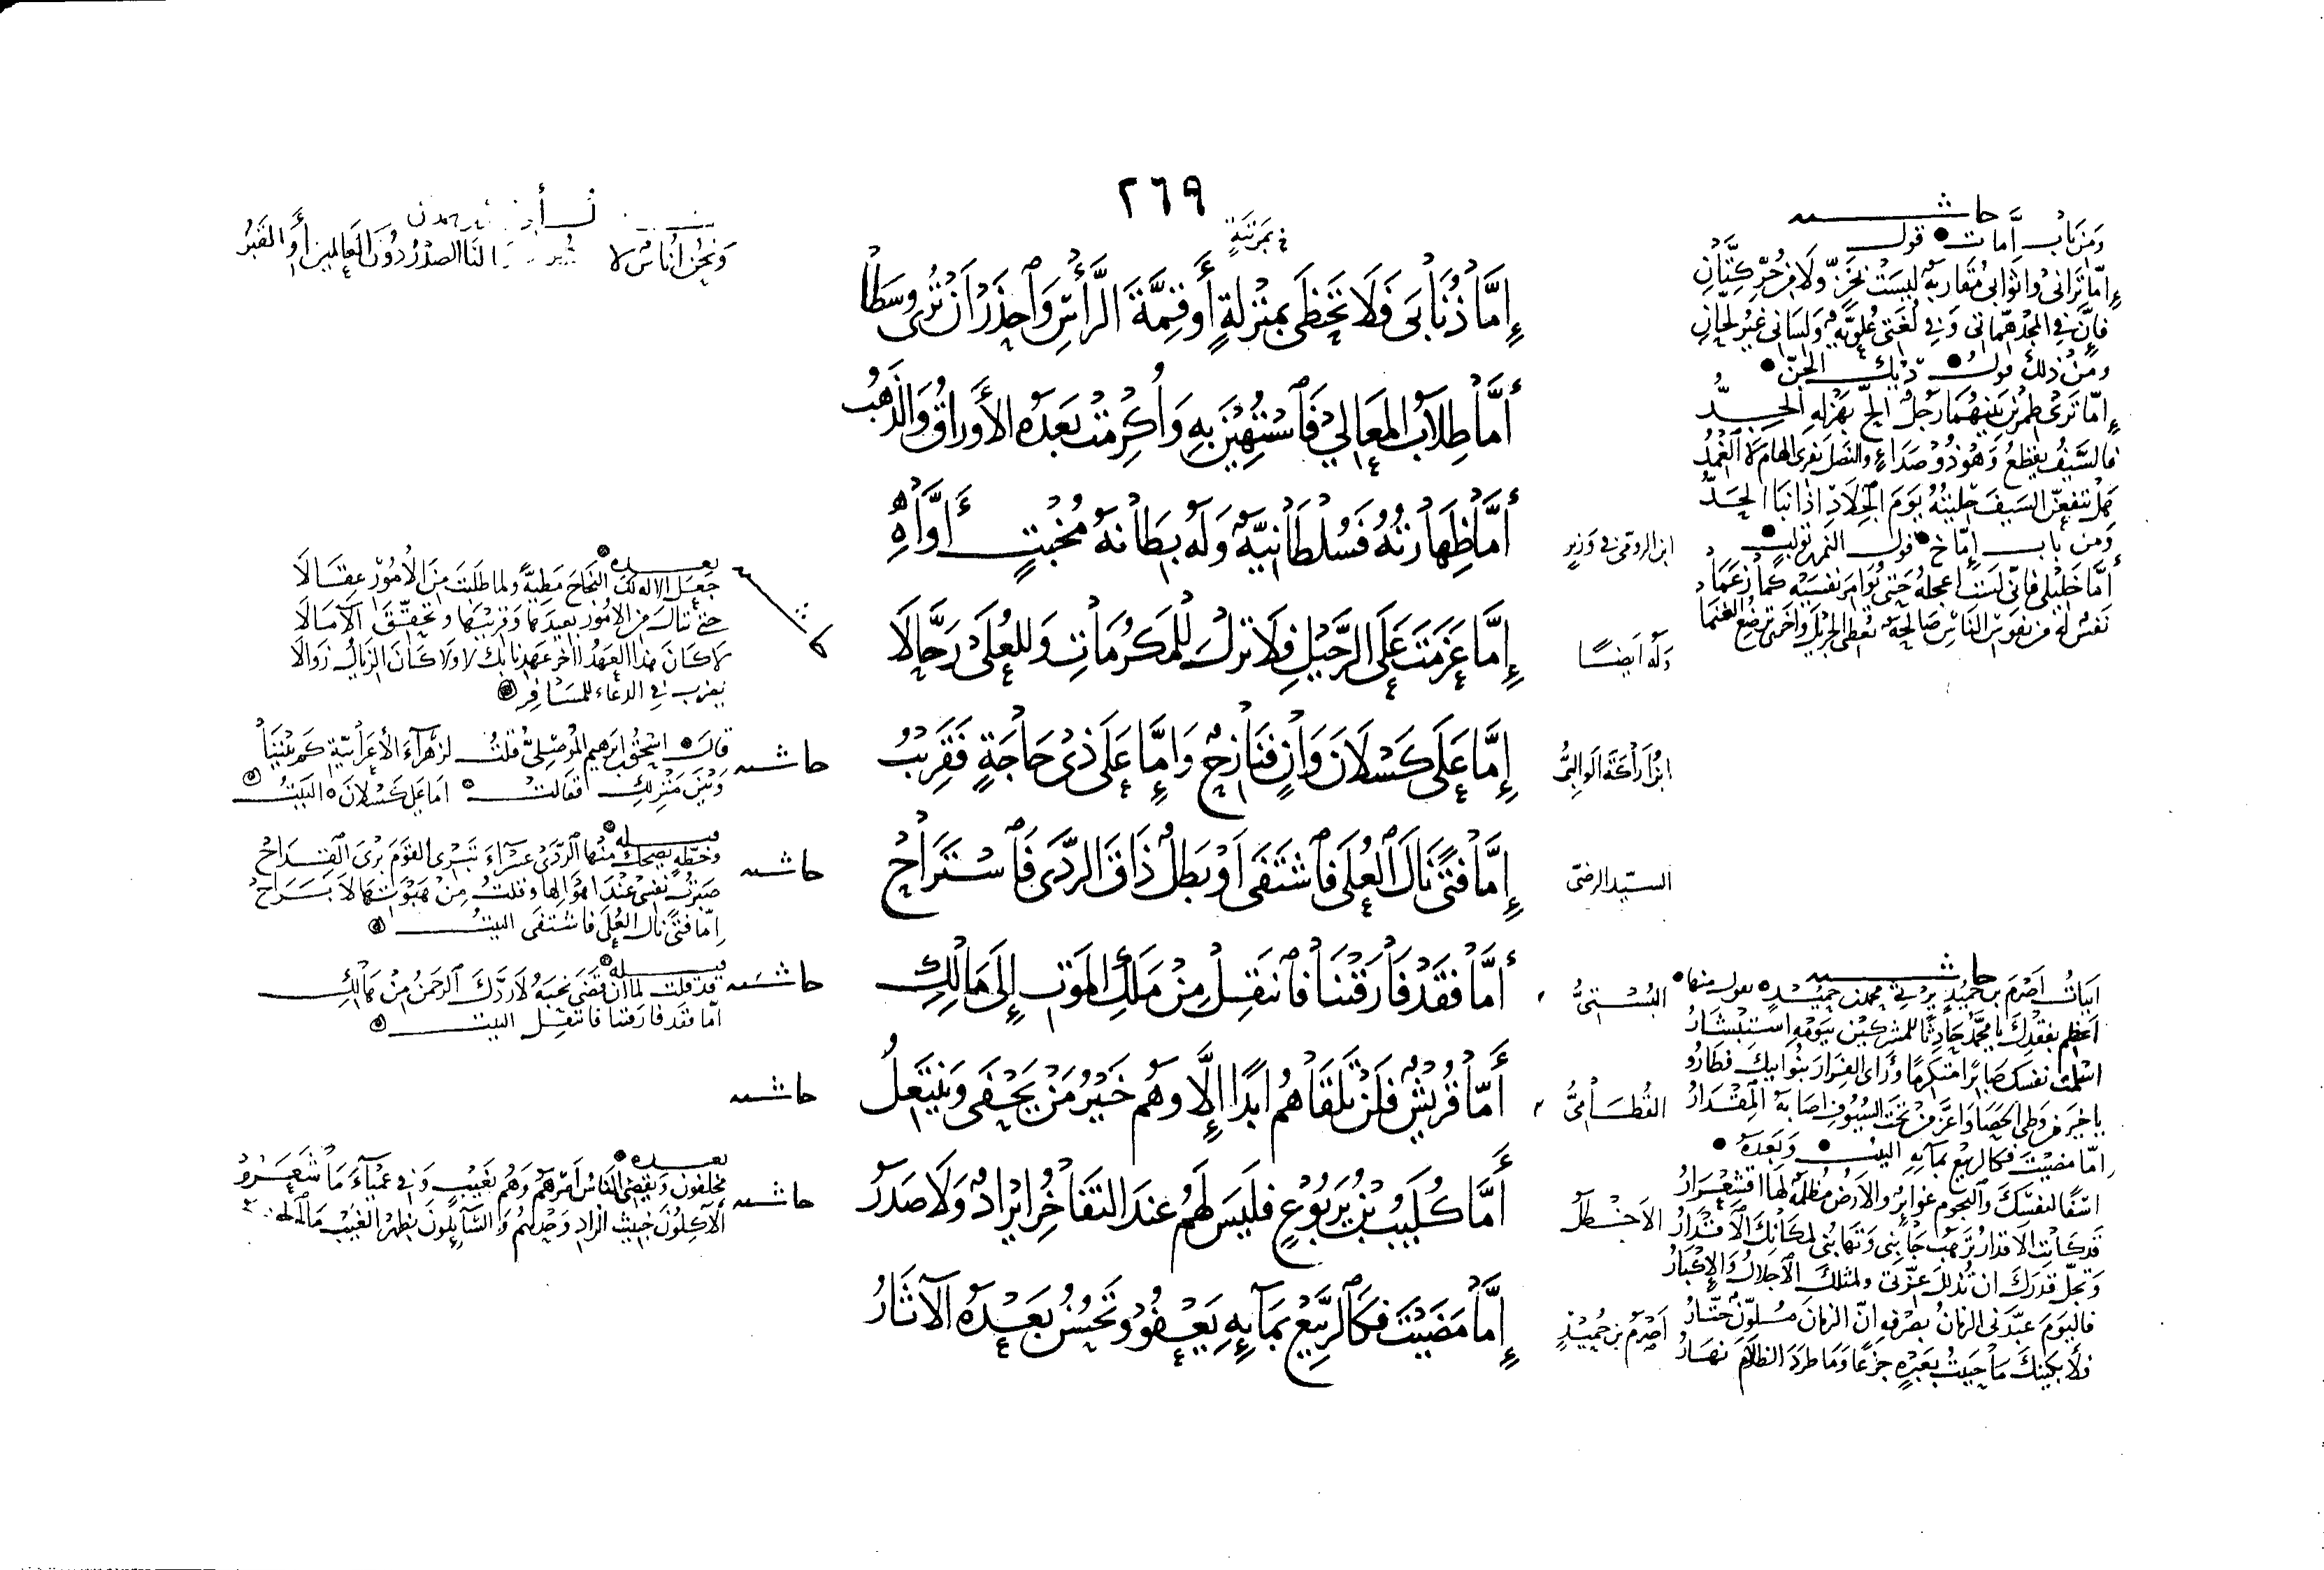 ٢٦٩
في مرتبة
إِمَّا ذُنَابَى فَلَا تَحْظَى بِمَنْزِلَةٍ أَو قِمَّةَ الرَّأْسِ وَاحْذَرْ أَنْ تُرى وَسَطَا
أَمَّا طِلَابُ المَعَالِي فَاسْتُهِينَ بِهِ وَأُكْرِمَتْ بَعْدَهُ الأَوْرَاقُ وَالذَّهَبُ
أَمَّا ظِهَارَتُهُ فَسُلْطَانِيَّةٌ وَلَهُ بِطَانَةُ مُخْبِتٍ أَوَّاهِ
إِمَّا عَزَمْتَ عَلَى الرَّحِيْلِ فَلَا تَزَلْ لِلْمَكْرُمَاتِ وَلِلْعُلَى رَحَّالَا
إِمَّا عَلَى كَسْلَانَ وَانٍ فَنَازِحٌ وَإِمَّا عَلَى ذِي حَاجَةٍ فَقَرِيْبُ
إِمَّا فَتًى نَالَ العُلَى فَاشْتَفَى أَوْ بَطَلٌ ذَاقَ الرَّدَى فَاسْتَرَاحْ
أَمَّا فَقَدْ فَارَقْتَنَا فَانْتَقِلْ مِنْ مَلَكِ المَوْتِ إِلَى مَالِكِ
أَمَّا قُرَيْشٌ فَلَنْ تَلْقَاهُمُ أَبَدًا إِلَّا وَهُمْ خَيْرُ مَنْ يَحْفَى وَيَنْتَعِلُ
أَمَّا كُلَيْبُ بْنُ يَرْبُوعٍ فَلَيْسَ لَهُمْ عِنْدَ التَّفَاخُرِ إِيْرَادٌ وَلَا صَدَرُ
إِمَّا مَضَيْتَ فَكَالرَّبِيْعِ بِمَائِهِ يَعْفُو وَتَحْسُنُ بَعْدَهُ الآثَارُ
ابن الرومي في وزير
وله أيضًا
ابن أراكة الوالبيُّ
السيّد الرضيّ
البُسْتيُّ
القُطَاميُّ
الأخطل
أصرم بن حُمَيْدٍ
حاشيه
ومن باب إمّا ت قول
إمّا تراني وأثوابي مقاربة ليست بخزّ ولا من حُرّ كتّانِ
فإنّ في المجد همّاتي وفي لغتي علويّة ولساني غير لحّانِ
ومن ذلك قول ديك الجن
إمّا ترى طمرين بينهما رجل ألحّ بهزله الجدُّ
فالسيف يقطع وهو ذو صداءٍ والنصل يفري الهام لا الغمدُ
هل تنفعنّ السيف حليته يوم الجلاد إذا نبا الحدُّ
ومن باب إمّا خ قول النمر تولب
أمّا خليلي فإنّي لست أعجله حتى يؤامر نفسيه كما زعما
نفس له من نفوس الناس صالحة تعطي الجزيل وأخرى ترضع الغنما
حاشيه
أبيات أصرم بن حميد يرثي محمد بن حميد يقول منها
أعظم بفقدك يا محمد حادثًا للمشركين بيومه استبشارُ
أسلمت نفسك صابرًا متكرمًا ورأى الفرار بنو أبيك فطاروا
يا خير من وطئ الحصا وأعزّ من تحت السيوف أصابه المقدارُ
إمّا مضيت فكالربيع بمائه البيت وبعده
أسفًا لنفسك والنجوم غوائر والأرض مظلمة لها اقشعرارُ
قد كانت الأقدار ترهب جانبي وتهابني لمكانك الأقدارُ
وتجلّ قدرك أن تذلل عزّتي ولمثلك الإجلال والإكبارُ
فاليوم عبّدني الزمان بصرفه إنّ الزمان مسلّط ختّارُ
فلأبكينك ما حييت بعبرة جزعًا وما طرد الظلام نهارُ
ونحن أناس لا لنا الصدر دون العالمين أو القبرُ
بعده
جعل الإله لك النجاح مطيةً ولما طلبت من الأمور عقالا
حتى تنال من الأمور بعيدها وقريبها وتحقّق الآمالا
لا كان هذا العهد آخر عهدنا بك لا ولا كان الزيال زوالا
يضرب في الدعاء للمسافر
حاشيه
قال إسحق بن إبرهيم الموصليّ قلت لزهراء الأعرابيّة كم بيننا
وبين منزلكِ فقالت أما على كسلان البيت
حاشيه
قبله
وخطّةٍ يضحك منها الردى عسراء تبري القوم بري القداحْ
صبرت نفسي عند أهوالها وقلت من هبوتها لا براحْ
إمّا فتى نال العلى فاشتفى البيت
حاشيه
قبله
قد قلت لما أن قضى نحبه لا ردّك الرحمن من هالكِ
أمّا فقد فارقتنا فانتقل البيت
حاشيه
حاشيه
بعده
مخلفون ويقضي الناس أمرهم وهم بغيب وفي عمياء ما شعروا
الآكلون خبيث الزاد وحدهم والسائلون بظهر الغيب ما الخبر